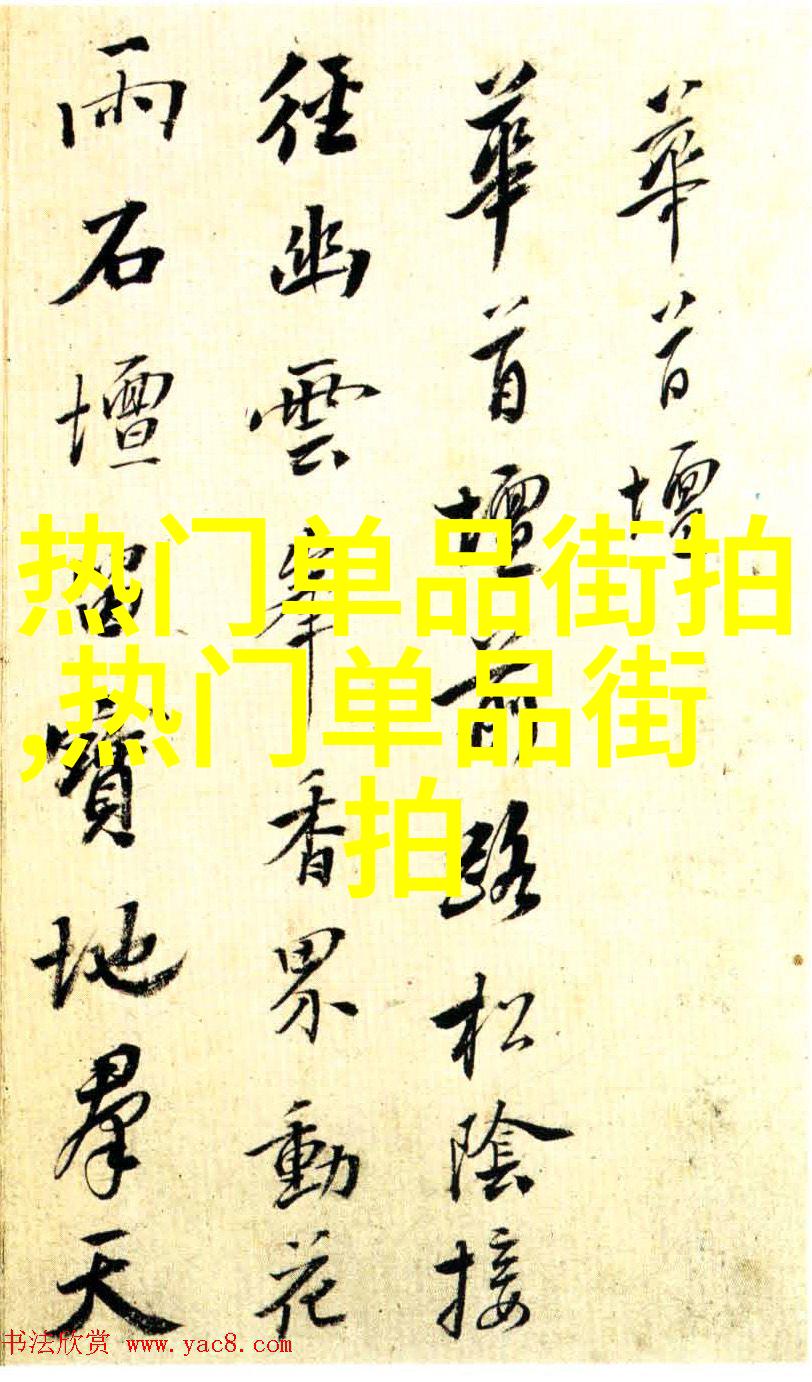 華首壇
華首壇前路松陰接
徑幽雲峯香界動花
雨石壇留寶地羣天
热门单品街拍
,热门单品街
拍
书法欣赏 www.yac8.com